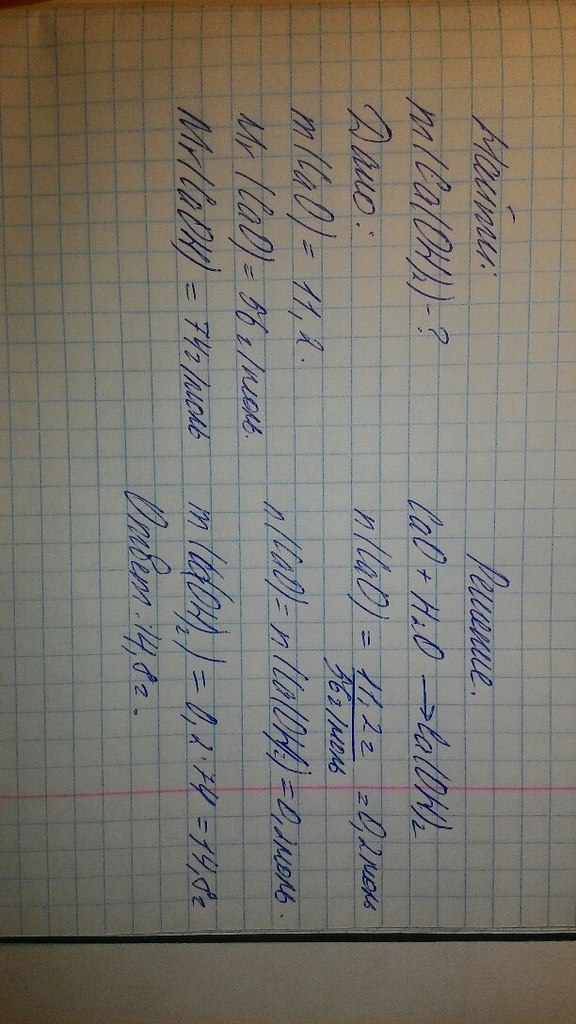 Найти:
m(Ca(OH)2) - ?
Дано:
m(CaO) = 11,2.
Mr(CaO) = 56 г/моль.
Mr(CaOH) = 74 г/моль
Решение.
CaO + H2O → Ca(OH)2
n(CaO) = 11,2 г / 56 г/моль = 0,2 моль
n(CaO) = n(Ca(OH)2) = 0,2 моль.
m(Ca(OH)2) = 0,2 · 74 = 14,8 г
Ответ: 14,8 г.